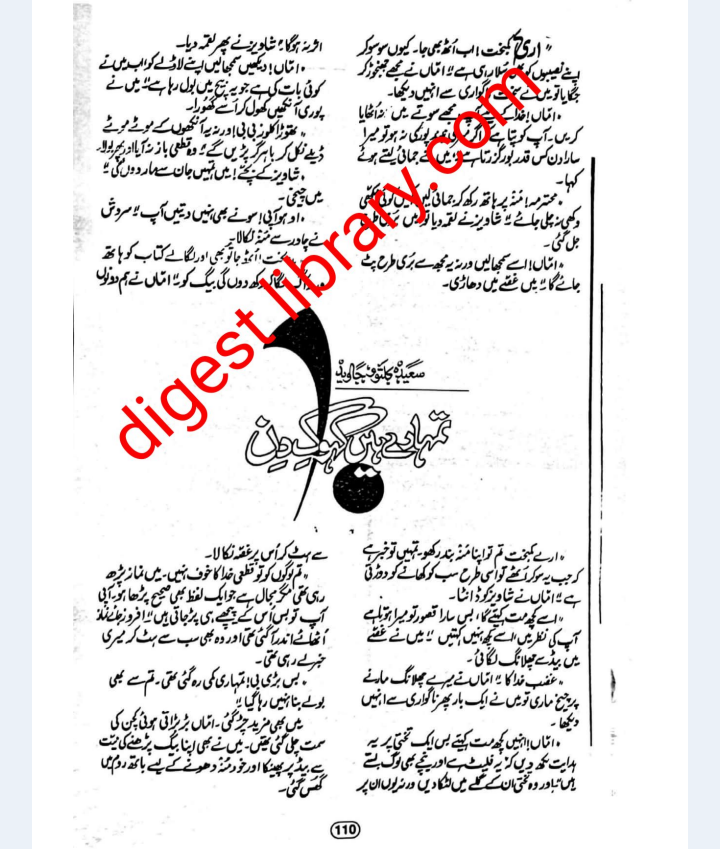 " ارے کمبخت! اب اُٹھ بھی جا۔ کیوں سو سو کر
اپنے نصیبوں کو سلا رہی ہے" اماں نے مجھے جھنجوڑ کر
جگایا تو میں نے سخت ناگواری سے انہیں دیکھا۔
" اماں! خدا کے لیے مجھے سوتے میں نہ اُٹھایا
کریں۔ آپ کو پتا ہے اگر میری نیند پوری نہ ہو تو میرا
سارا دن کس قدر بور گزرتا ہے" میں نے جمائی لیتے ہوئے
کہا۔
" محترمہ! منہ پر ہاتھ رکھ کر جمائی لیں کوئی مکھی
وکھی نہ چلی جائے" شاویز نے لقمہ دیا تو میں بری طرح
جل گئی۔
" اماں! اسے سمجھا لیں ورنہ یہ مجھ سے بُری طرح پٹ
جائے گا" میں غصے میں دھاڑی۔
اثر نہ ہو گا" شاویز نے پھر لقمہ دیا۔
" اماں! دیکھیں سمجھا لیں اپنے لاڈلے کو اب میں نے
کوئی بات کی ہے جو یہ بیچ میں بول رہا ہے" میں نے
پوری آنکھیں کھول کر اُسے گھورا۔
" تھوڑا کم گھورو بی بی! ورنہ یہ آنکھوں کے موٹے موٹے
ڈیلے نکل کر باہر گر پڑیں گے" وہ قطعی باز نہ آیا اور پھر بولا۔
" شاویز کے بچے! میں تمہیں جان سے مار دوں گی"
میں چیخی۔
" اوہو آپی! سونے بھی نہیں دیتیں آپ" سروش
نے چادر سے منہ نکالا۔
کمبخت! اُٹھ جا تو بھی اور لگا لے کتاب کو ہاتھ
ورنہ آگ لگا کر رکھ دوں گی بیگ کو" اماں نے ہم دونوں
سعیدہ کلثوم جاوید
تمہارے ہیں کہو کے دن
" ارے کمبخت تم تو اپنا منہ بند رکھو۔ تمہیں تو خبر ہے
کہ جب یہ سو کر اُٹھے تو اسی طرح سب کو کھانے کو دوڑتی
ہے" اماں نے شاویز کو ڈانٹا۔
" اسے کچھ مت کہئیے گا، بس سارا قصور تو میرا ہوتا ہے
آپ کی نظر میں، اسے کچھ نہیں کہتیں" میں نے غصے
میں بیڈ سے چھلانگ لگائی۔
" غضب خدا کا" اماں نے میرے چھلانگ مارنے
پر چیخ ماری تو میں نے ایک بار پھر ناگواری سے انہیں
دیکھا۔
" اماں! انہیں کچھ مت کہیئے بس ایک تختی پر یہ
ہدایت لکھ دیں کہ یہ فلیٹ ہے اور نیچے بھی لوگ بستے
ہیں اور وہ تختی ان کے گلے میں لٹکا دیں ورنہ یوں ان پر
سے ہٹ کر اُس پر غصہ نکالا۔
" تم لوگوں کو تو قطعی خدا کا خوف نہیں۔ میں نماز پڑھ
رہی تھی مگر مجال ہے جو ایک لفظ بھی صحیح پڑھا ہو۔ آپی
آپ تو بس اُس کے پیچھے ہی پڑ جاتی ہیں" افروز جائے نماز
اُٹھائے اندر آ گئی تھی اور وہ بھی سب سے ہٹ کر میری
خبر لے رہی تھی۔
" بس بڑی بی! تمہاری کمی رہ گئی تھی۔ تم سے بھی
بولے بنا نہیں رہا گیا"
میں بھی مزید چڑ گئی۔ اماں بڑبڑاتی ہوئی کچن کی
سمت چلی گئی تھیں۔ میں نے بھی اپنا بیگ پڑھنے کی نیت
سے بیڈ پر پھینکا اور خود منہ دھونے کے لیے باتھ روم میں
گھس گئی۔
110
digest library.com